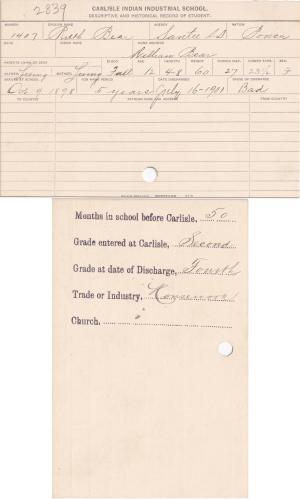 2839
CARLISLE INDIAN INDUSTRIAL SCHOOL.
DESCRIPTIVE AND HISTORICAL RECORD OF STUDENT.
NUMBER ENGLISH NAME AGENCY NATION
1407 Ruth Bear Santee Ponca
INDIAN NAME HOME ADDRESS
William Bear
PARENTS LIVING OR DEAD BLOOD AGE HEIGHT WEIGHT SEX
FATHER Living MOTHER Living Full 12 4-8 60 27 F
ARRIVED AT SCHOOL FOR WHAT PERIOD DATE OF DISCHARGE CAUSE OF DISCHARGE
Oct 9 1898 5 years July 16-1901 Bad
TO COUNTRY PATRONS NAME AND ADDRESS FROM COUNTRY
Months in school before Carlisle, 50
Grade entered at Carlisle, Second
Grade at date of Discharge, Fourth
Trade or Industry,
Church,